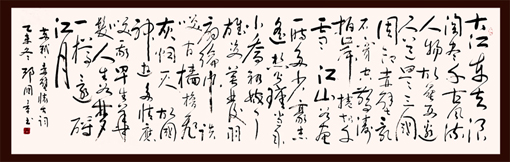 大江东去浪
淘尽千古风流
人物故垒西边
人道是三国
周郎赤壁乱
石穿空惊涛
拍岸卷起千堆
雪江山如画
一时多少豪杰
遥想公瑾当年
小乔初嫁了
雄姿英发羽
扇纶巾谈
笑间樯橹飞
灰烟灭故国
神游多情应
笑我早生华
发人生如梦
一樽还酹
江月
苏轼赤壁怀古词
冬
书